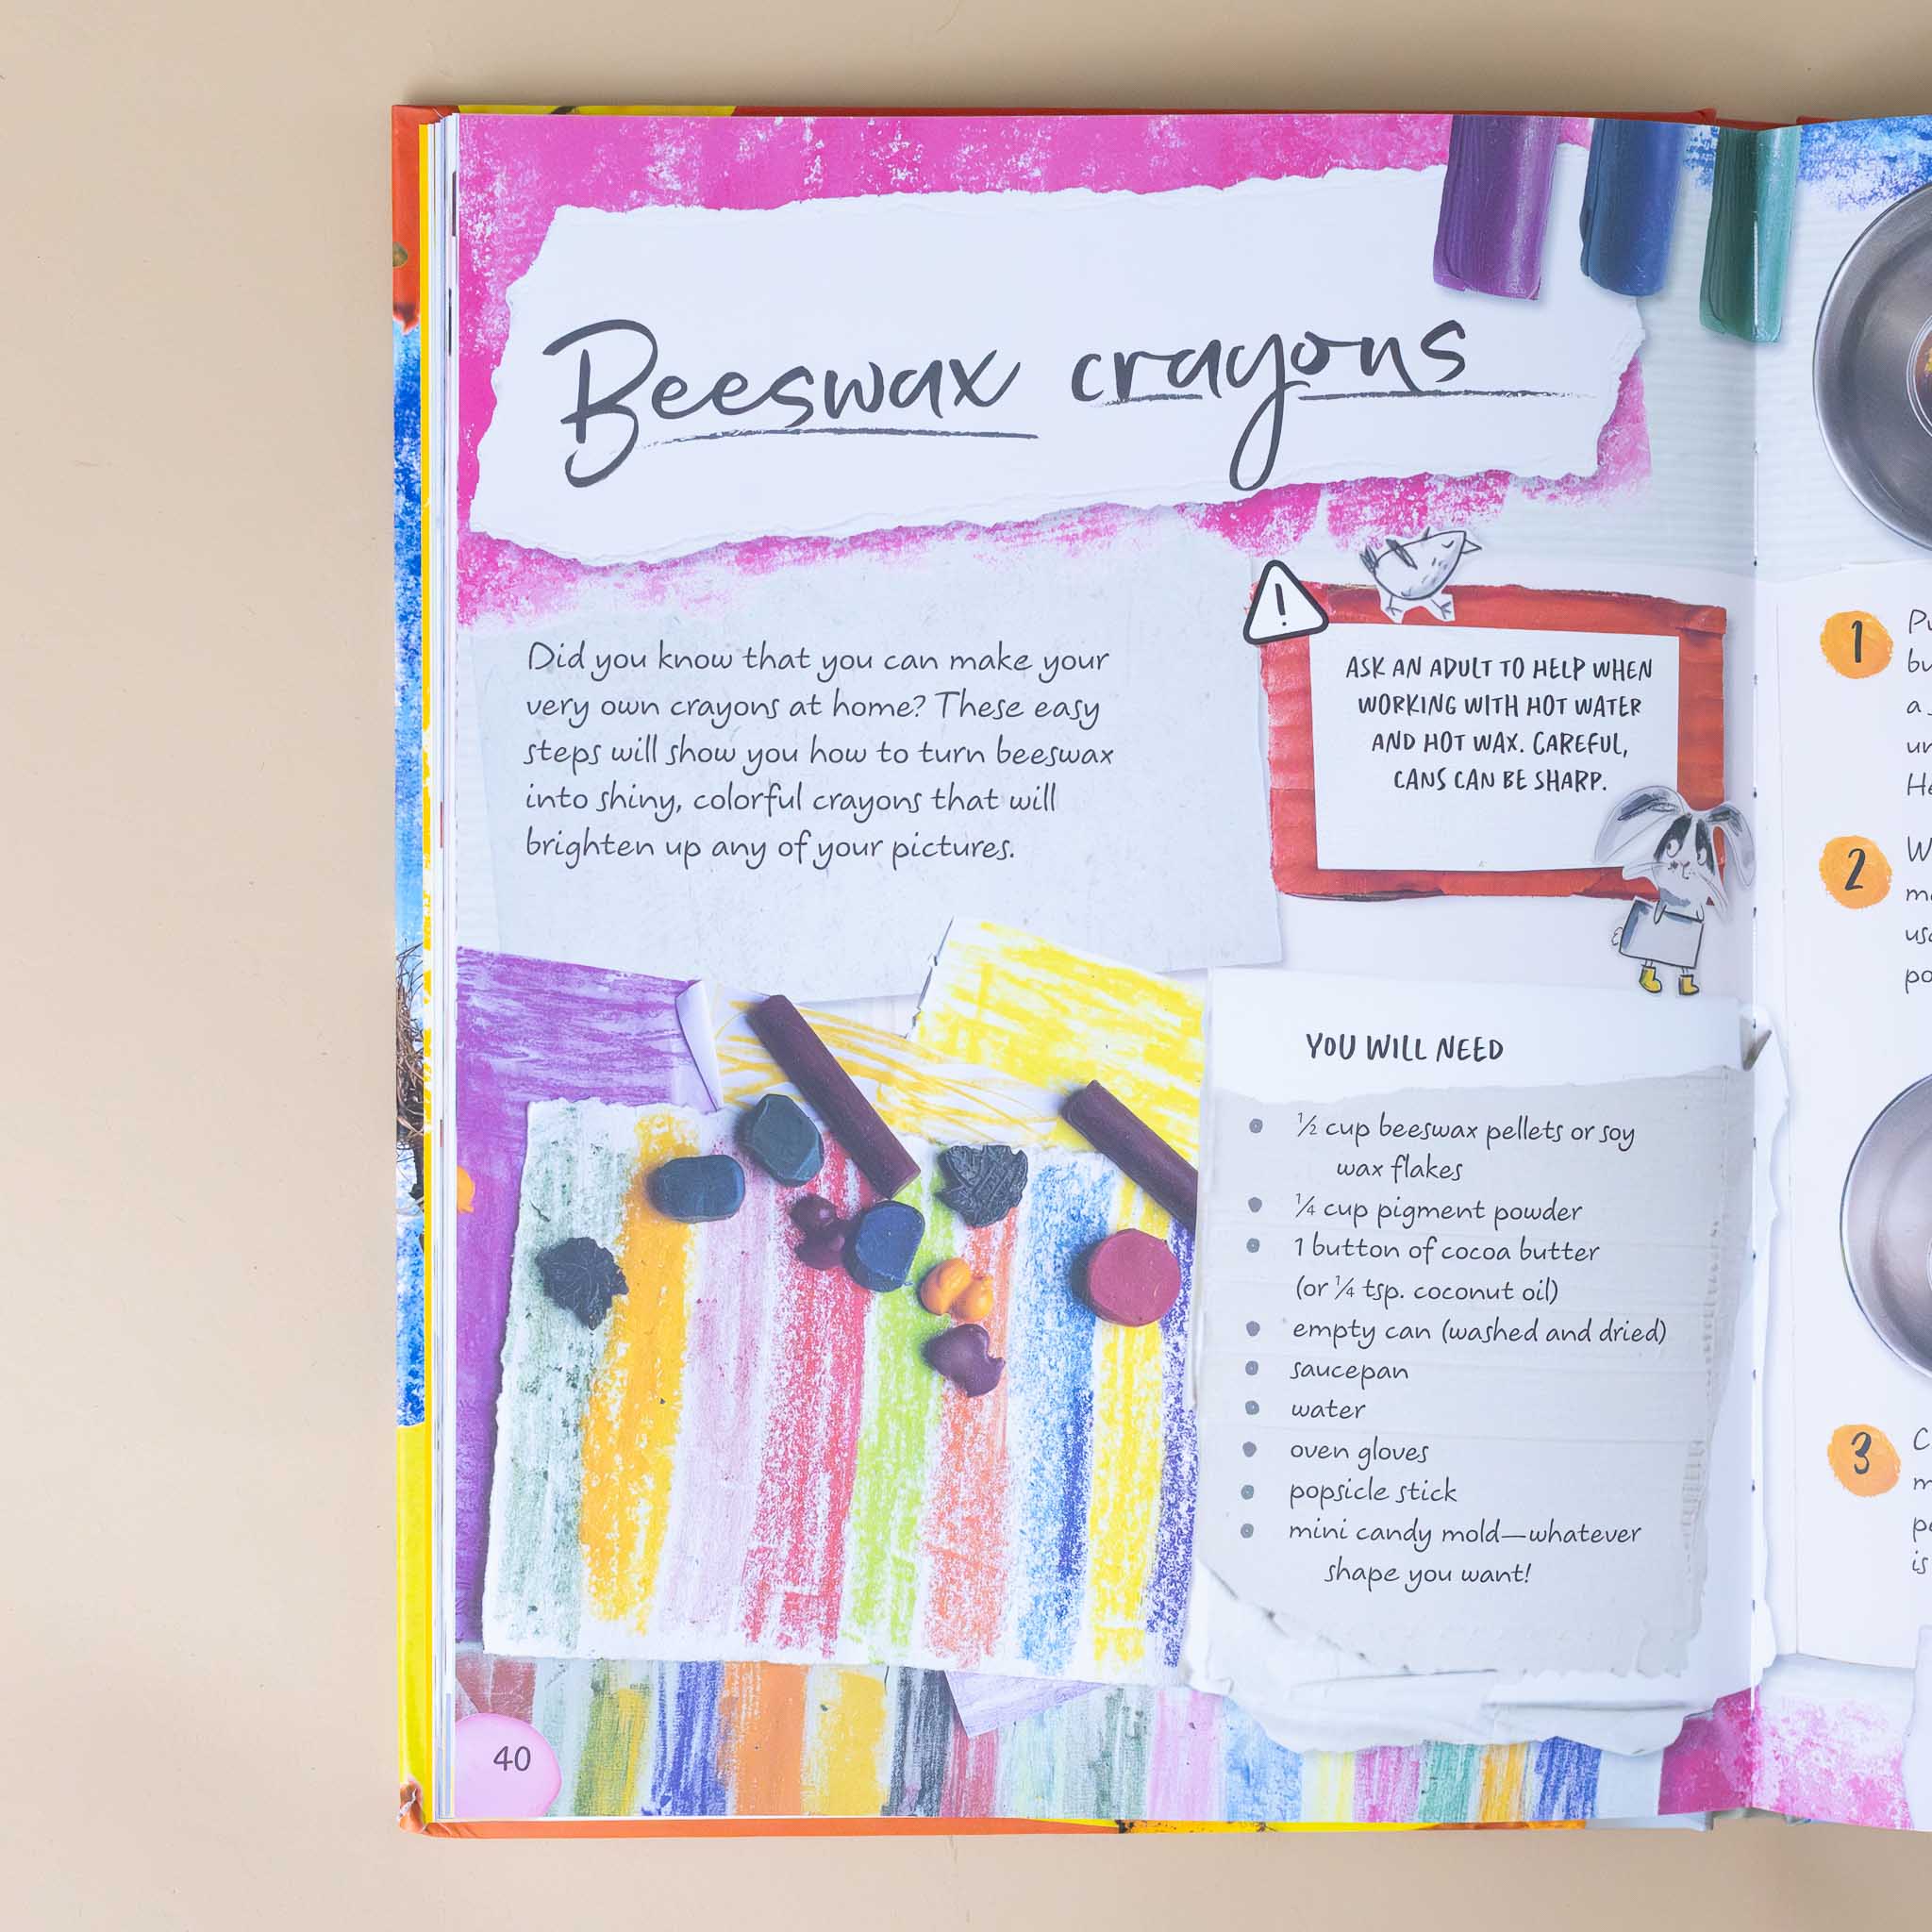 Beeswax crayons
Did you know that you can make your
very own crayons at home? These easy
steps will show you how to turn beeswax
into shiny, colorful crayons that will
brighten up any of your pictures.
!
ASK AN ADULT TO HELP WHEN
WORKING WITH HOT WATER
AND HOT WAX. CAREFUL,
CANS CAN BE SHARP.
YOU WILL NEED
½ cup beeswax pellets or soy
wax flakes
¼ cup pigment powder
1 button of cocoa butter
(or ¼ tsp. coconut oil)
empty can (washed and dried)
saucepan
water
oven gloves
popsicle stick
mini candy mold—whatever
shape you want!
40
1
2
3